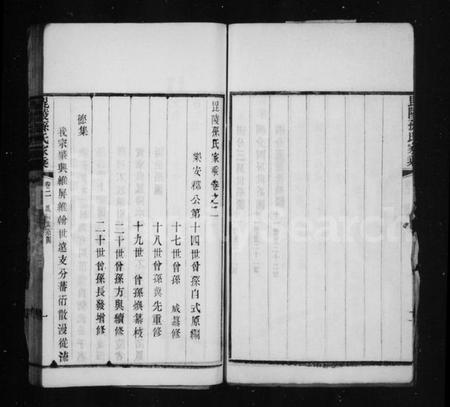 毘陵孫氏家乘
毘陵孫氏家乘卷之二
樂安穆公第十四世曾孫自式原編
十七世曾孫 威纂修
十八世曾孫 先重修
十九世 曾孫 纂枝
二十世曾孫方與續修
二十世曾孫長發增修
德集
我宗肇興維屏維翰世遠支分蕃衍散漫從
毘陵孫氏家乘
卷二